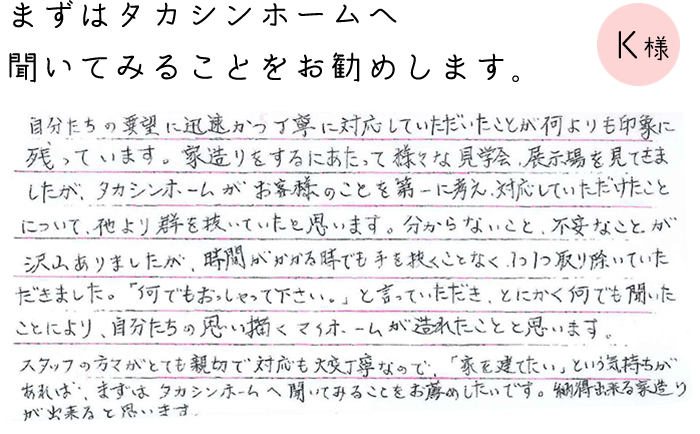 まずはタカシンホームへ
聞いてみることをお勧めします。
K様
自分たちの要望に迅速かつ丁寧に対応していただいたことが何よりも印象に
残っています。家造りをするにあたって様々な見学会、展示場を見てきま
したが、タカシンホームがお客様のことを第一に考え、対応していただけたこと
について、他より群を抜いていたと思います。分からないこと、不安なことが
沢山ありましたが、時間がかかる時でも手を抜くことなく、1つ1つ取り除いていた
だきました。「何でもおっしゃって下さい。」と言っていただき、とにかく何でも聞いた
ことにより、自分たちの思い描くマイホームが造れたことと思います。
スタッフの方々がとても親切で対応も大変丁寧なので、「家を建てたい」という気持ちが
あれば、まずはタカシンホームへ聞いてみることをお薦めしたいです。納得出来る家造り
が出来ると思います。